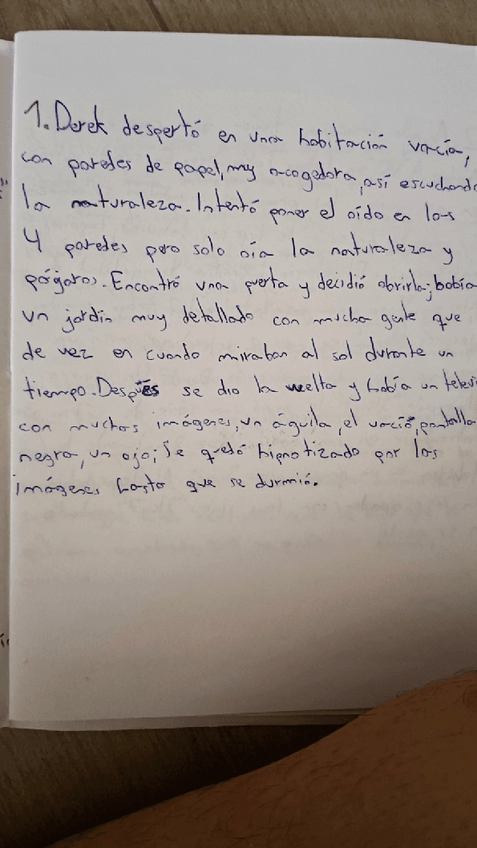 1. Derek despertó en una habitación vacía,
con paredes de papel, muy acogedora, así escuchando
la naturaleza. Intentó poner el oído en las
4 paredes pero solo oía la naturaleza y
pájaros. Encontró una puerta y decidió abrirla; había
un jardín muy detallado con mucha gente que
de vez en cuando miraban al sol durante un
tiempo. Después se dio la vuelta y había un televi
con muchas imágenes, un águila, el vacío, pantalla
negra, un ojo; Se quedó hipnotizado por las
imágenes hasta que se durmió.